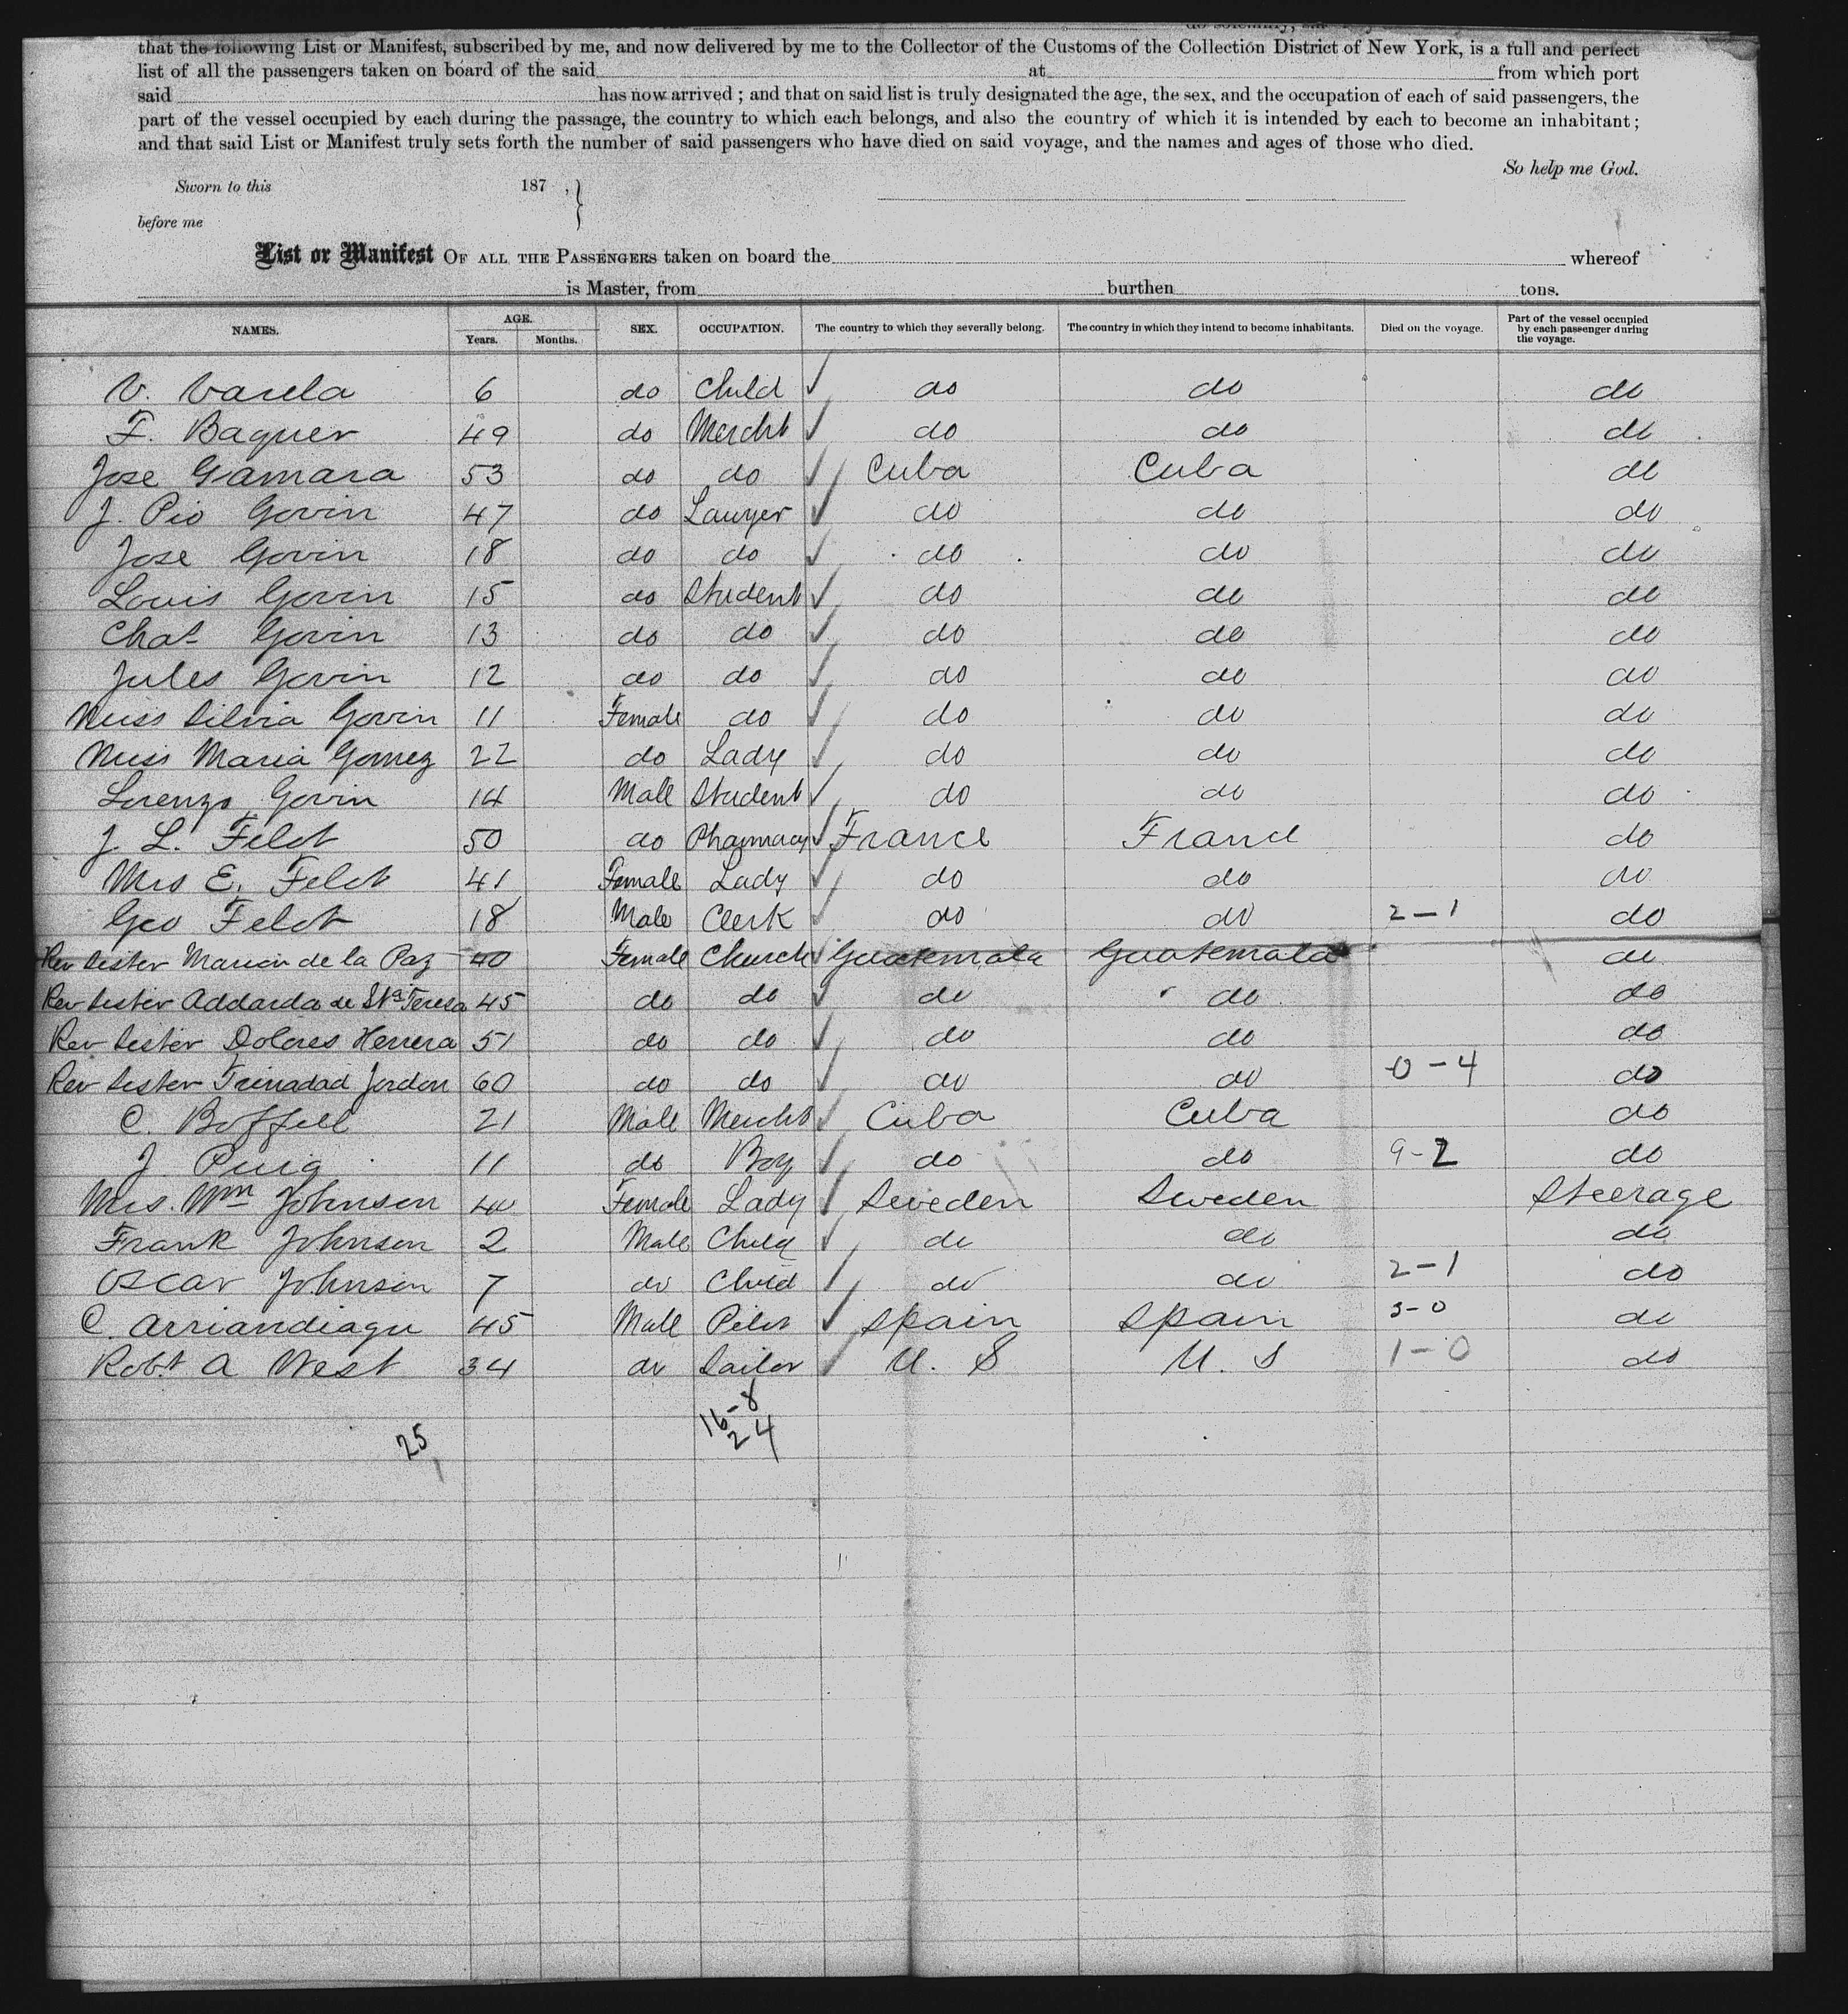 that the following List or Manifest, subscribed by me, and now delivered by me to the Collector of the Customs of the Collection District of New York, is a full and perfect
list of all the passengers taken on board of the said at from which port
said has now arrived ; and that on said list is truly designated the age, the sex, and the occupation of each of said passengers, the
part of the vessel occupied by each during the passage, the country to which each belongs, and also the country of which it is intended by each to become an inhabitant ;
and that said List or Manifest truly sets forth the number of said passengers who have died on said voyage, and the names and ages of those who died.
So help me God.
Sworn to this 187 , }
before me
List or Manifest OF ALL THE PASSENGERS taken on board the whereof
is Master, from burthen tons.
NAMES. AGE. Years. Months. SEX. OCCUPATION. The country to which they severally belong. The country in which they intend to become inhabitants. Died on the voyage. Part of the vessel occupied by each passenger during the voyage.
V. Varela 6 do Child ✓ do do do
F. Baguer 49 do Mercht ✓ do do do
Jose Gamara 53 do do ✓ Cuba Cuba do
J. Pio Govin 47 do Lawyer ✓ do do do
Jose Govin 18 do do ✓ do do do
Louis Govin 15 do Student ✓ do do do
Chas Govin 13 do do ✓ do do do
Jules Govin 12 do do ✓ do do do
Miss Silvia Govin 11 Female do ✓ do do do
Miss Maria Gomez 22 do Lady ✓ do do do
Lorenzo Govin 14 Male Student ✓ do do do
J. L. Felot 50 do Pharmacy ✓ France France do
Mrs E. Felot 41 Female Lady ✓ do do do
Geo Felot 18 Male Clerk ✓ do do 2-1 do
Rev Sister Marion de la Paz 40 Female Church ✓ Guatemala Guatemala do
Rev Sister Addarda de Sta Teresa 45 do do ✓ do do do
Rev Sister Dolores Herrera 51 do do ✓ do do do
Rev Sister Trinadad Jordon 60 do do ✓ do do 0-4 do
C. Boffill 21 Male Mercht ✓ Cuba Cuba do
J. Puig 11 do Boy ✓ do do 9-2 do
Mrs. Wm Johnson 40 Female Lady ✓ Sweden Sweden Steerage
Frank Johnson 2 Male Child ✓ do do do
Oscar Johnson 7 do Child ✓ do do 2-1 do
C. Arriandiagu 45 Male Pilot ✓ Spain Spain 3-0 do
Robt A West 34 do Sailor ✓ U. S U. S 1-0 do
16-8
25 24